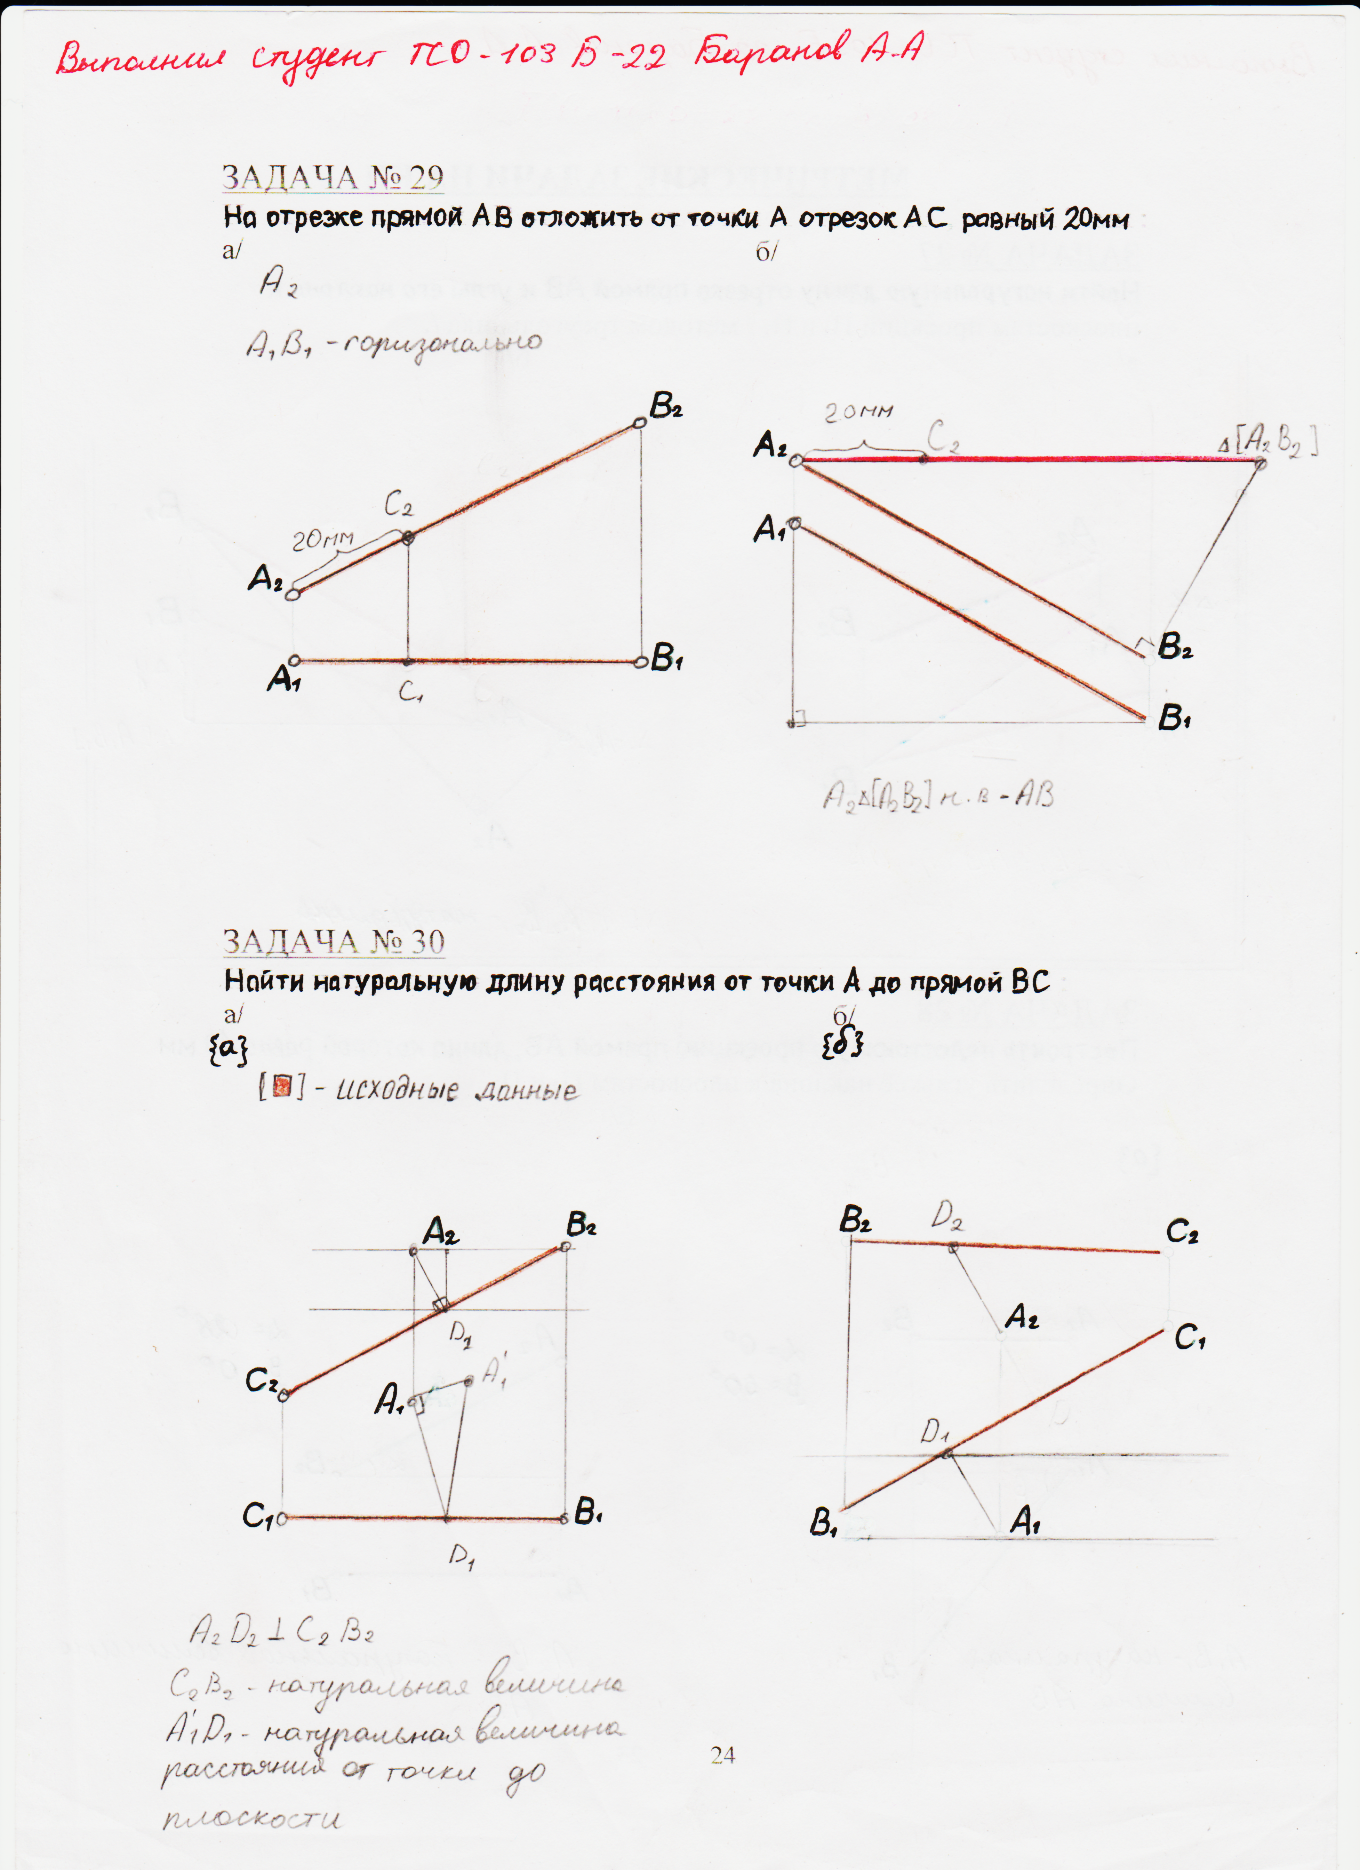 Выполнил студент ТСО-103 Б-22 Баранов А.А
ЗАДАЧА № 29
На отрезке прямой АВ отложить от точки А отрезок АС равный 20мм
а/ б/
A₂
A₁B₁ - горизонально
B₂
C₂
20мм
A₂
A₁
C₁
B₁
20мм
A₂
C₂
Δ[A₂B₂]
A₁
B₂
B₁
A₂Δ[A₂B₂] н.в - AB
ЗАДАЧА № 30
Найти натуральную длину расстояния от точки А до прямой ВС
а/ б/
{а} {б}
[ ] - исходные данные
A₂
B₂
D₂
C₂
A₁'
A₁
C₁
B₁
D₁
B₂
D₂
C₂
A₂
C₁
D₁
B₁
A₁
A₂D₂ ⊥ C₂B₂
C₂B₂ - натуральная величина
A₁'D₁ - натуральная величина
расстояния от точки до
плоскости
24